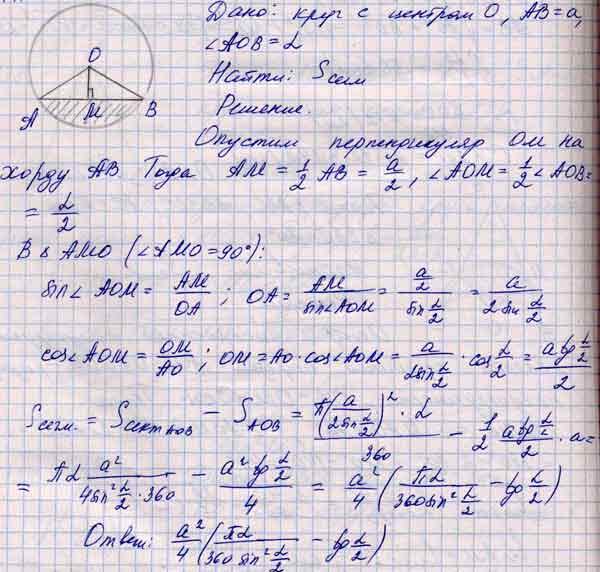 Дано: круг с центром O, AB=a,
∠AOB=α
Найти: Sсегм
Решение.
Опустим перпендикуляр OM на
хорду AB Тогда AM = 1/2 AB = a/2, ∠AOM = 1/2 ∠AOB =
= α/2
В Δ AMO (∠AMO=90°):
sin∠AOM = AM/OA ; OA = AM/sin∠AOM = (a/2)/(sin α/2) = a/(2 sin α/2)
cos∠AOM = OM/AO ; OM = AO·cos∠AOM = a/(2sin α/2) · cos α/2 = (a tg α/2)/2
Sсегм. = Sсект AOB − SAOB = (π(a/(2sin α/2))²·α)/360 − 1/2 (a tg α/2)/2 · a =
= πα a²/(4sin² α/2 · 360) − (a² tg α/2)/4 = a²/4 (πα/(360 sin² α/2) − tg α/2)
Ответ: a²/4 (πα/(360 sin² α/2) − tg α/2)
O
A
M
B